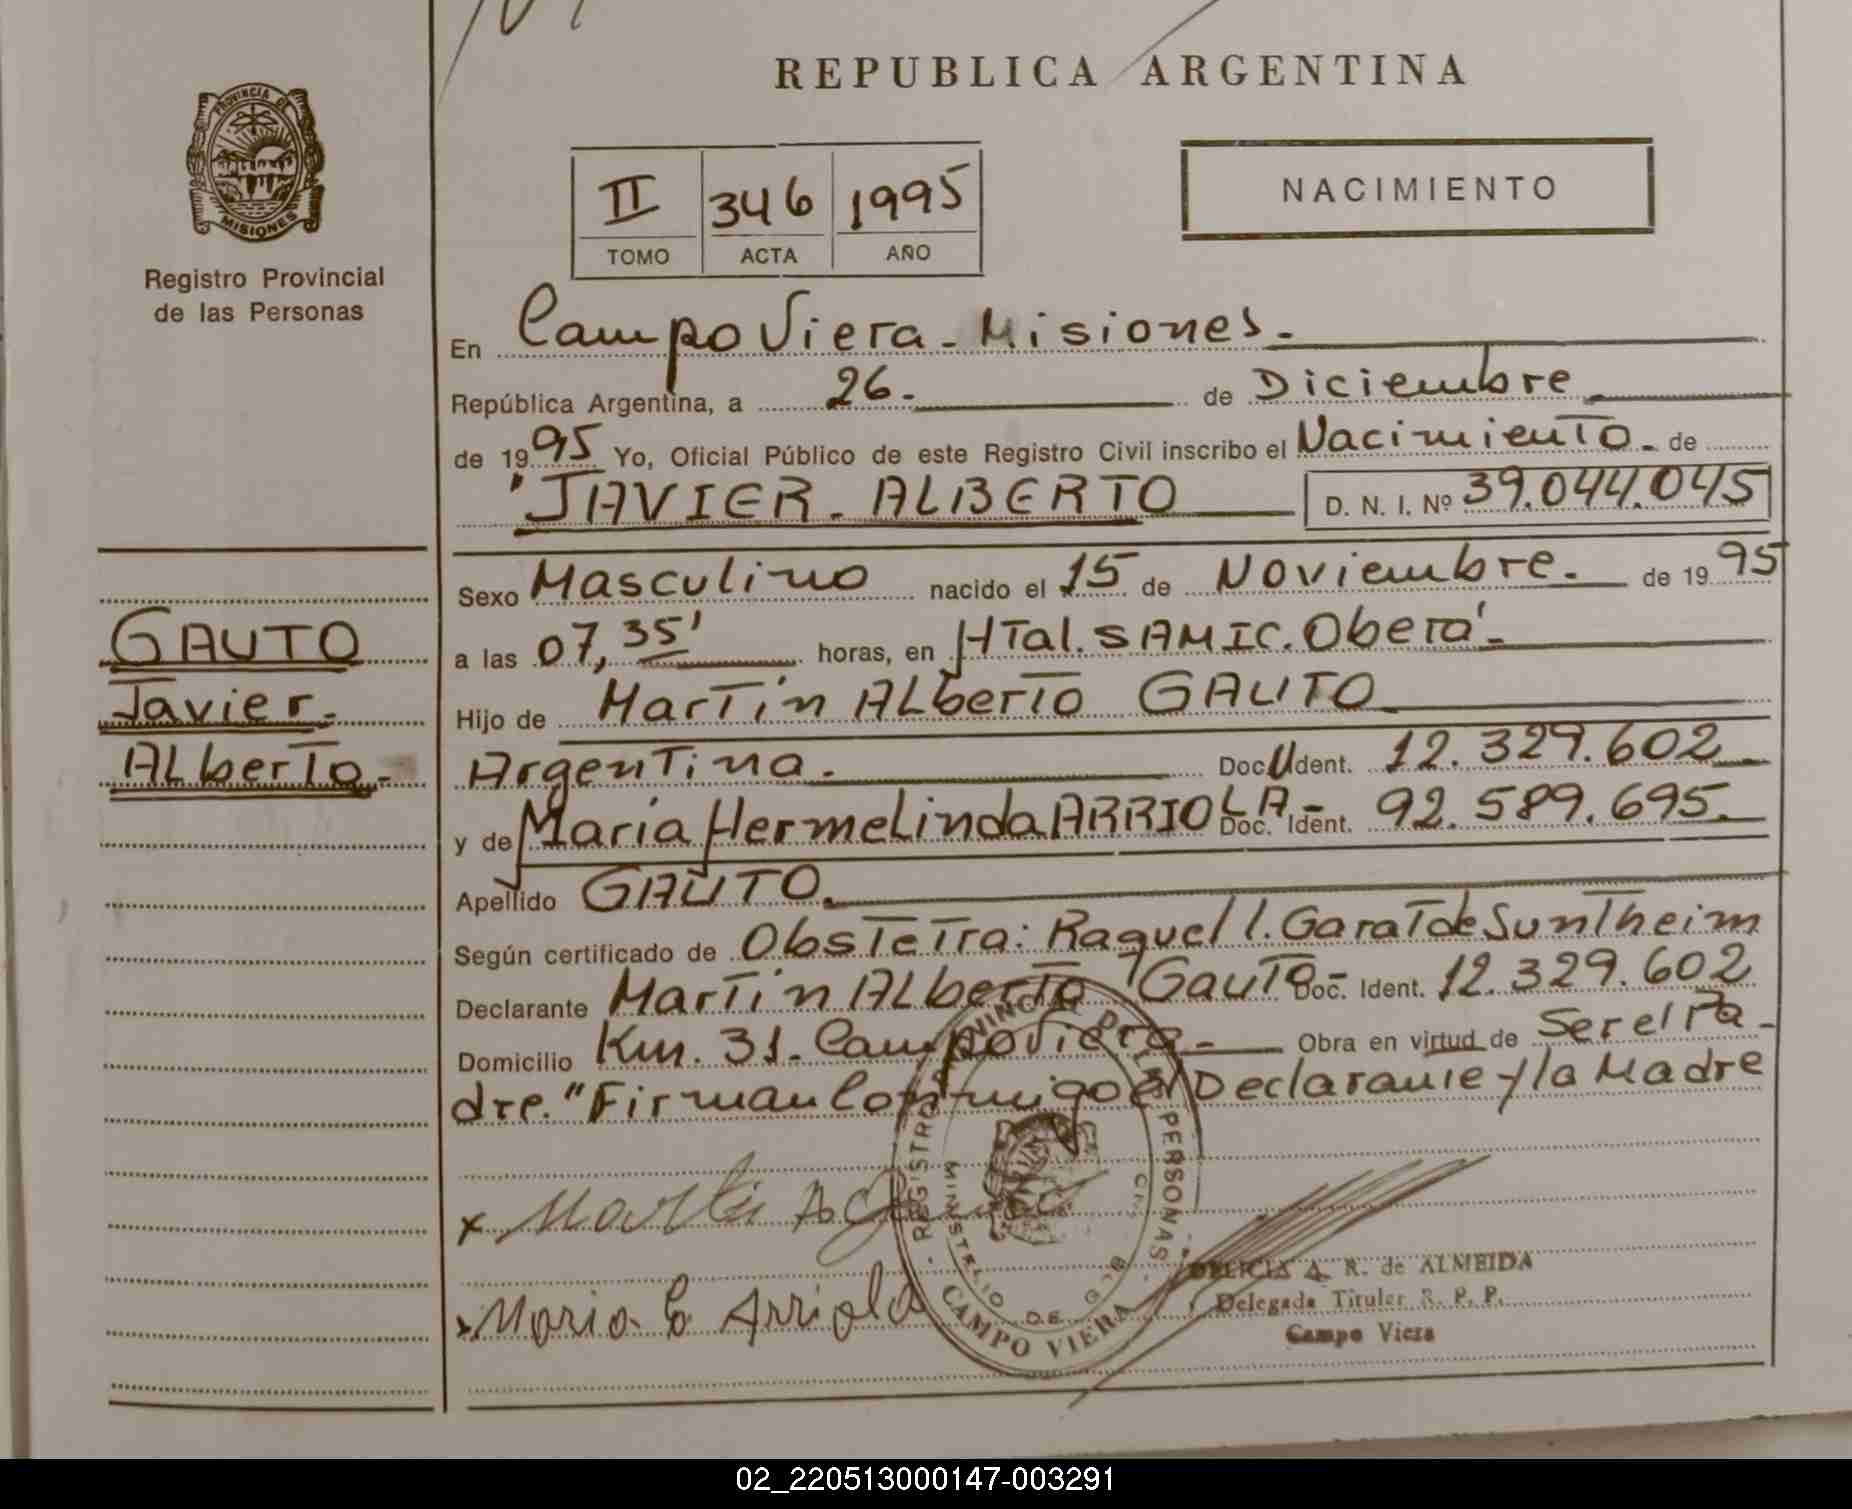 REPUBLICA ARGENTINA
PROVINCIA DE
MISIONES
Registro Provincial
de las Personas
II 346 1995
TOMO ACTA AÑO
NACIMIENTO
En Campo Viera - Misiones.
República Argentina, a 26. de Diciembre
de 1995 Yo, Oficial Público de este Registro Civil inscribo el Nacimiento. de
JAVIER. ALBERTO D. N. I. Nº 39.044.045
Sexo Masculino nacido el 15 de Noviembre. de 1995
a las 07,35' horas, en HTal. SAMIC. Oberá.
Hijo de Martín Alberto GAUTO
Argentina. Doc. U Ident. 12.329.602
y de María Hermelinda ARRIOLA - Doc. Ident. 92.589.695.
Apellido GAUTO.
Según certificado de Obstetra: Raquel I. Garat de Suntheim
Declarante Martín Alberto Gauto - Doc. Ident. 12.329.602
Domicilio Km. 31. Campo Viera. Obra en virtud de Ser el Pa-
dre." Firman Conmigo el Declarante y la Madre
GAUTO
Javier.
Alberto.
x Martin A G
x Maria E Arriola
REGISTRO PROVINCIAL DE LAS PERSONAS
MINISTERIO DE GOB
CAMPO VIERA
DELICIA A. R. de ALMEIDA
Delegada Titular R. P. P.
Campo Viera
02_220513000147-003291